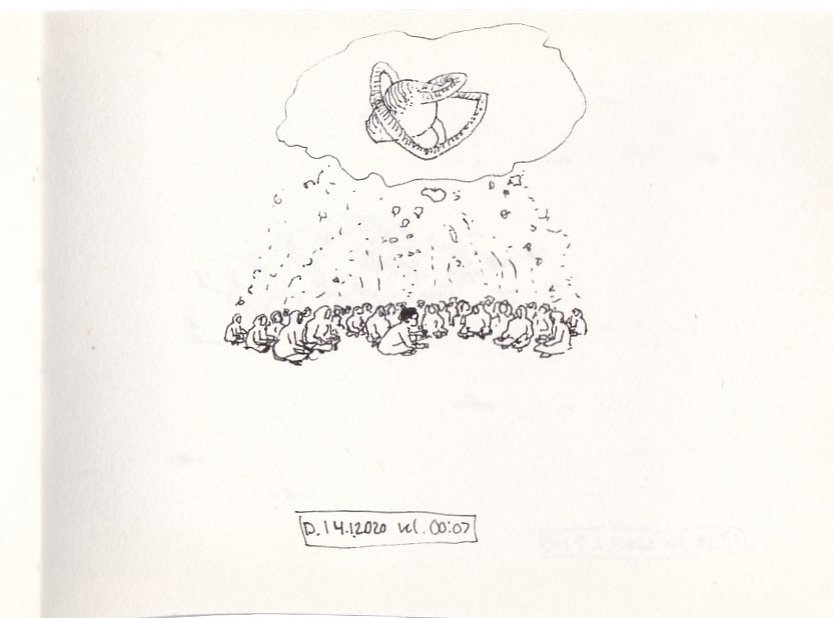 D. 14.1.2020 kl. 00:07